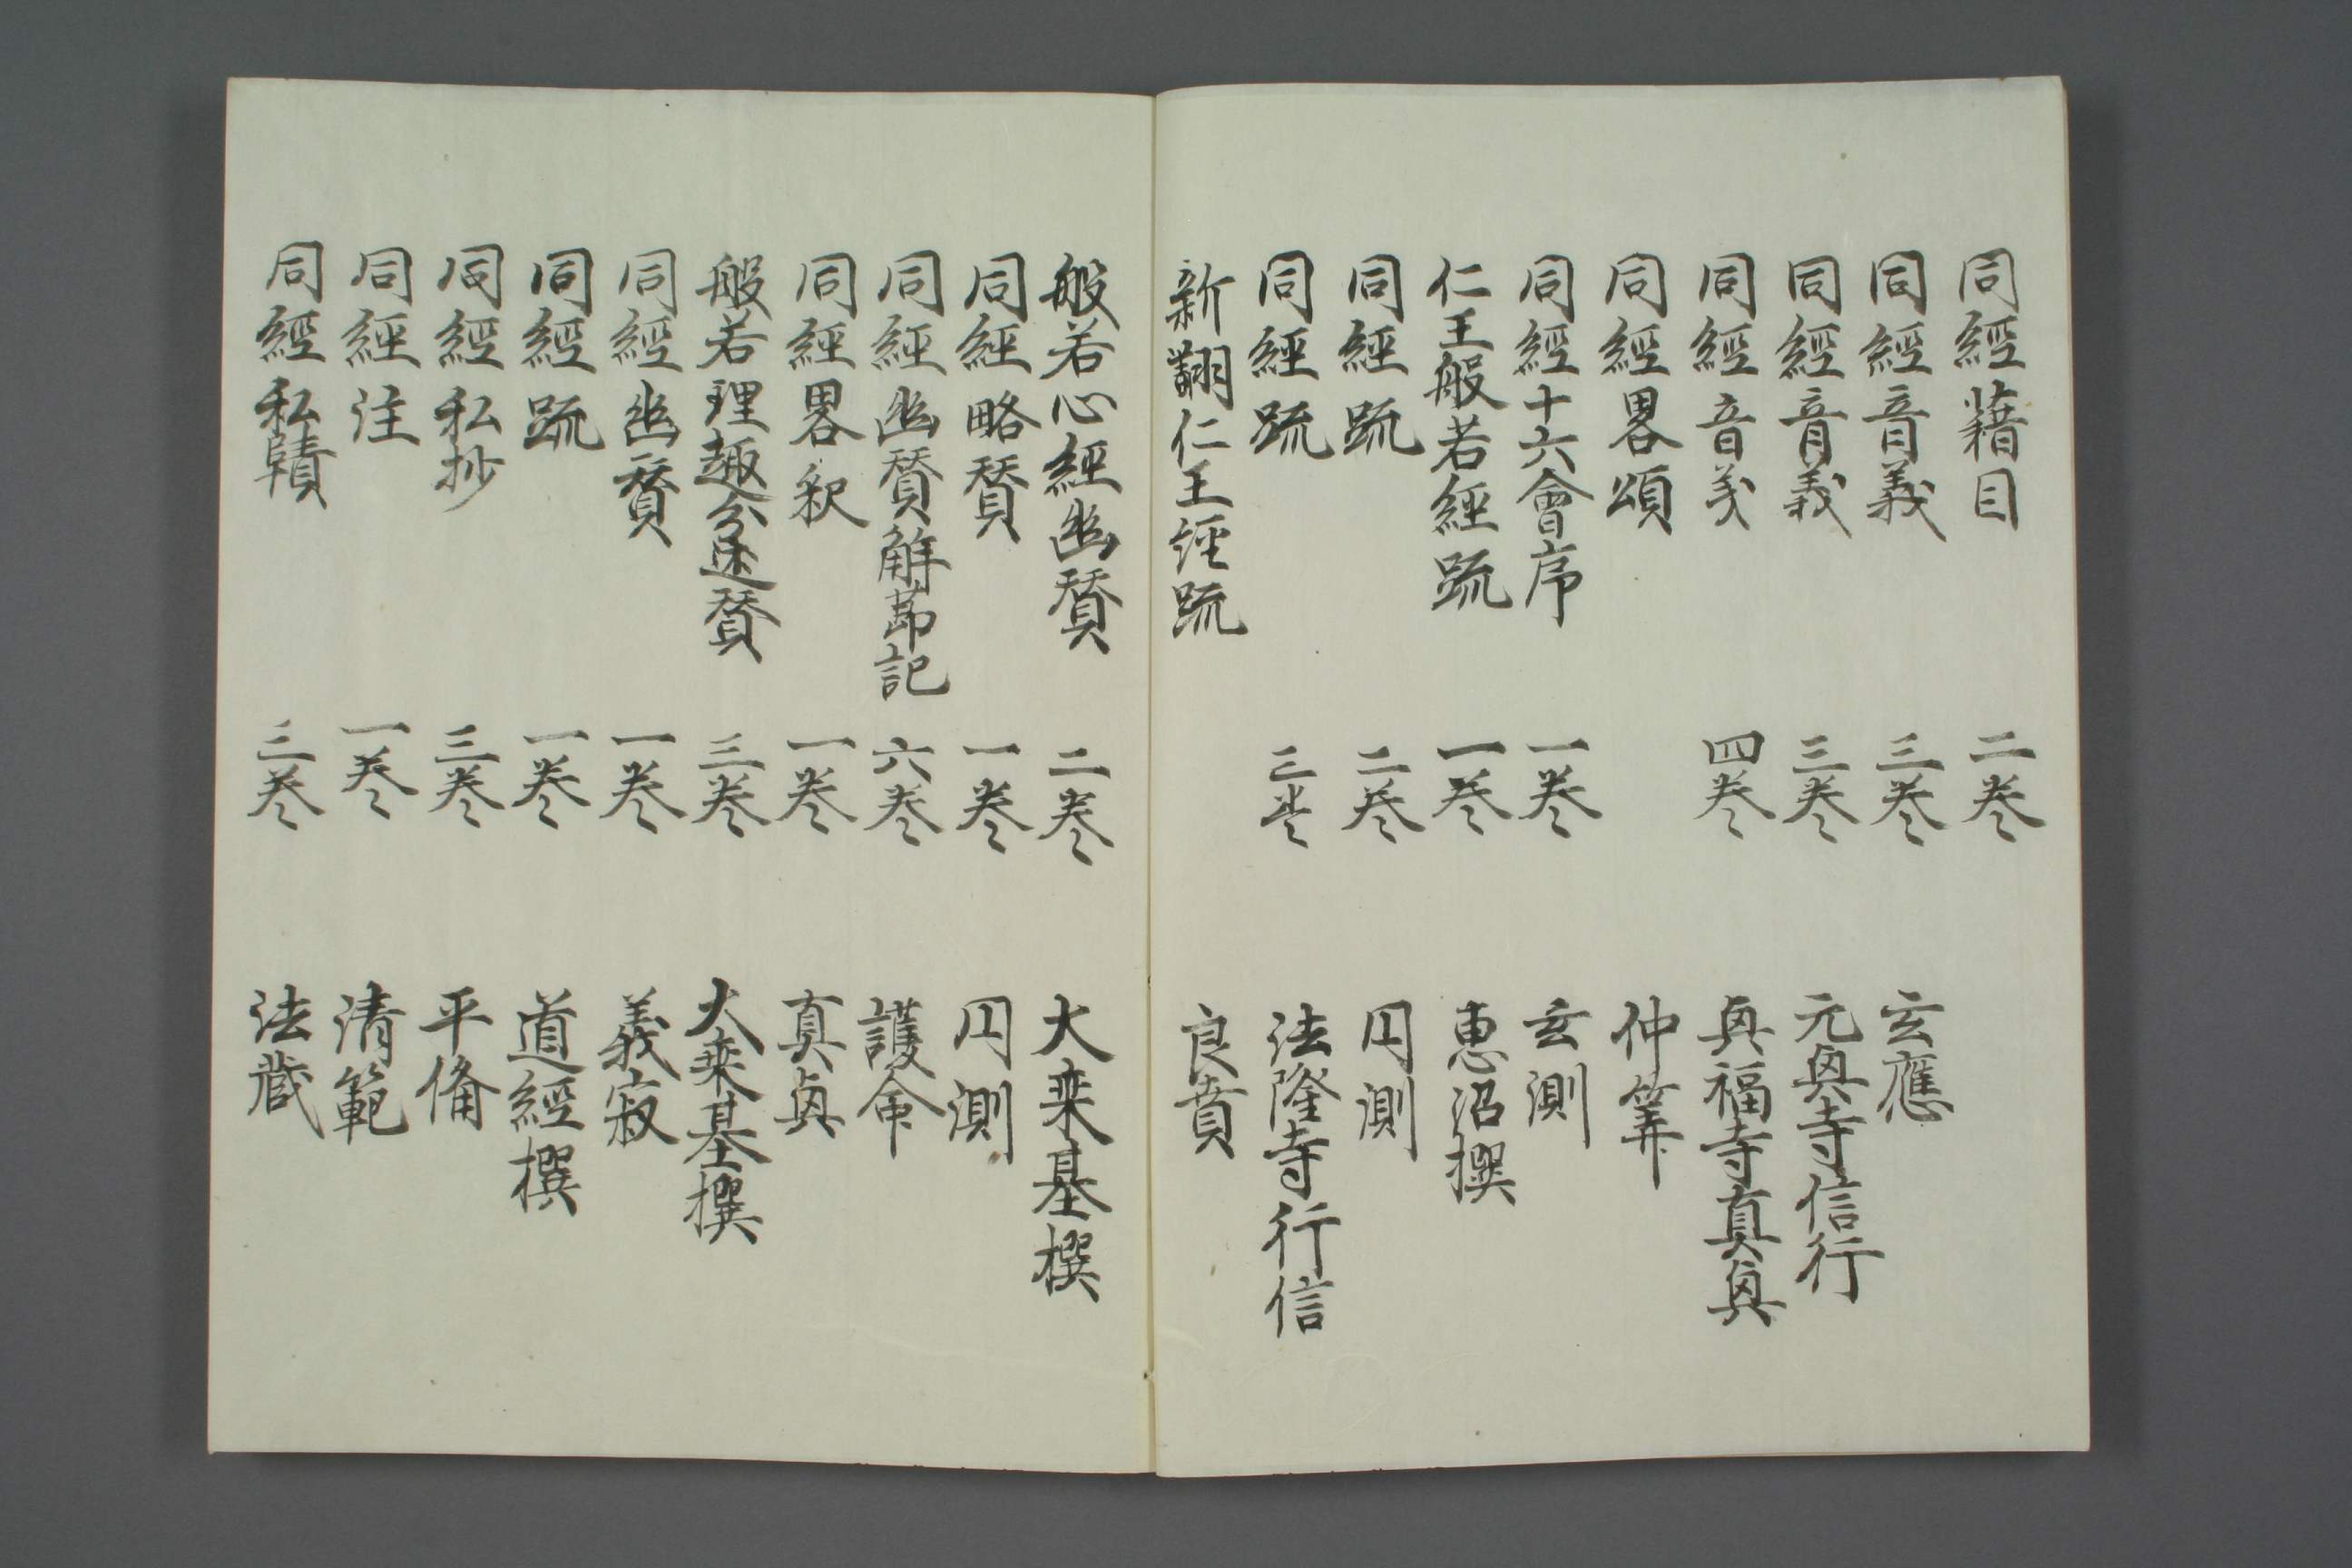 同經藉目 二巻
同經音義 三巻 玄應
同經音義 三巻 元興寺信行
同經音義 四巻 興福寺真興
同經畧頌 仲筭
同經十六會序 一巻 玄測
仁王般若經䟽 一巻 恵沼撰
同經䟽 二巻 円測
同經䟽 三巻 法隆寺行信
新翻仁王経䟽 良賁
般若心經幽賛 二巻 大乗基撰
同經略賛 一巻 円測
同經幽賛解節記 六巻 護命
同經畧釈 一巻 真興
般若理趣分述賛 三巻 大乗基撰
同經幽賛 一巻 義寂
同經䟽 一巻 道經撰
同經私抄 三巻 平備
同經注 一巻 清範
同經私 三巻 法蔵